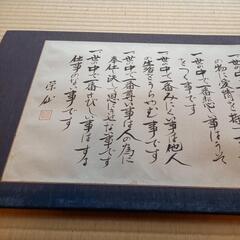 の物に愛情を持つ
一、世の中で一番悲しい事はうそ
をつく事です
一、世の中で一番みにくい事は他人
の生活をうらやむ事です
一、世の中で一番尊い事は人の為に
奉仕し決して恩にきせない事です
一、世の中で一番さびしい事はする
仕事のない事です